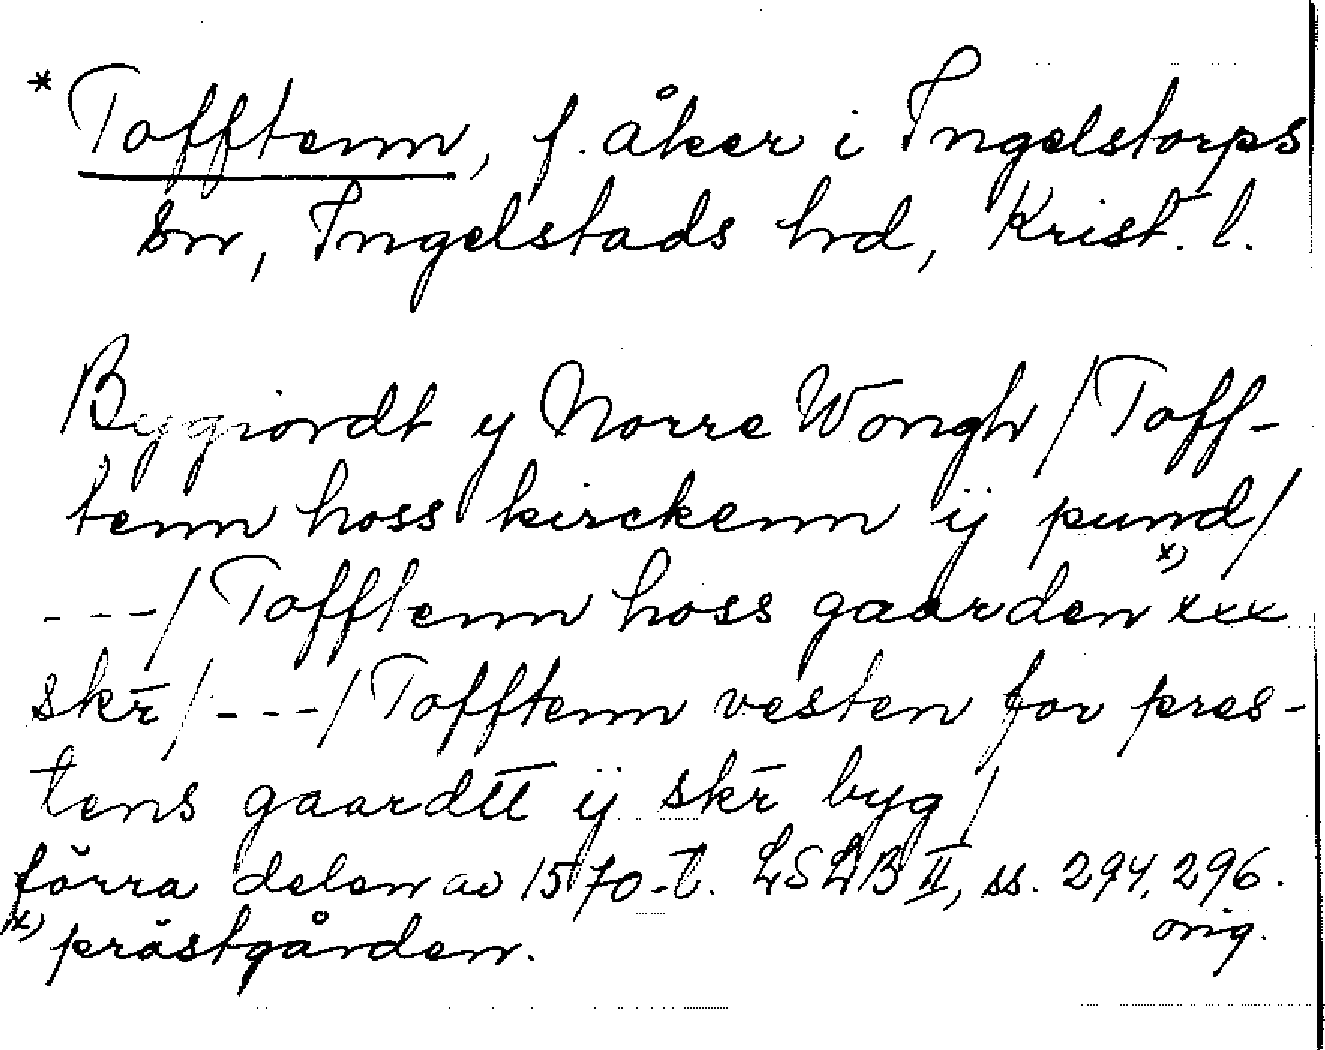 * Tofftenn, f. åker i Ingelstorps
sn, Ingelstads hrd, Krist. l.
Bygiordt y Norre Wongh / Toff-
tenn hoss kirckenn ij pund /
---/ Tofftenn hoss gaarden x) xxx
skr̄ / ---/ Tofftenn vesten for pres-
tens gaardtt ij skr̄ byg /
förra delen av 1570-t. LSLB II, ss. 294, 296.
orig.
x) prästgården.